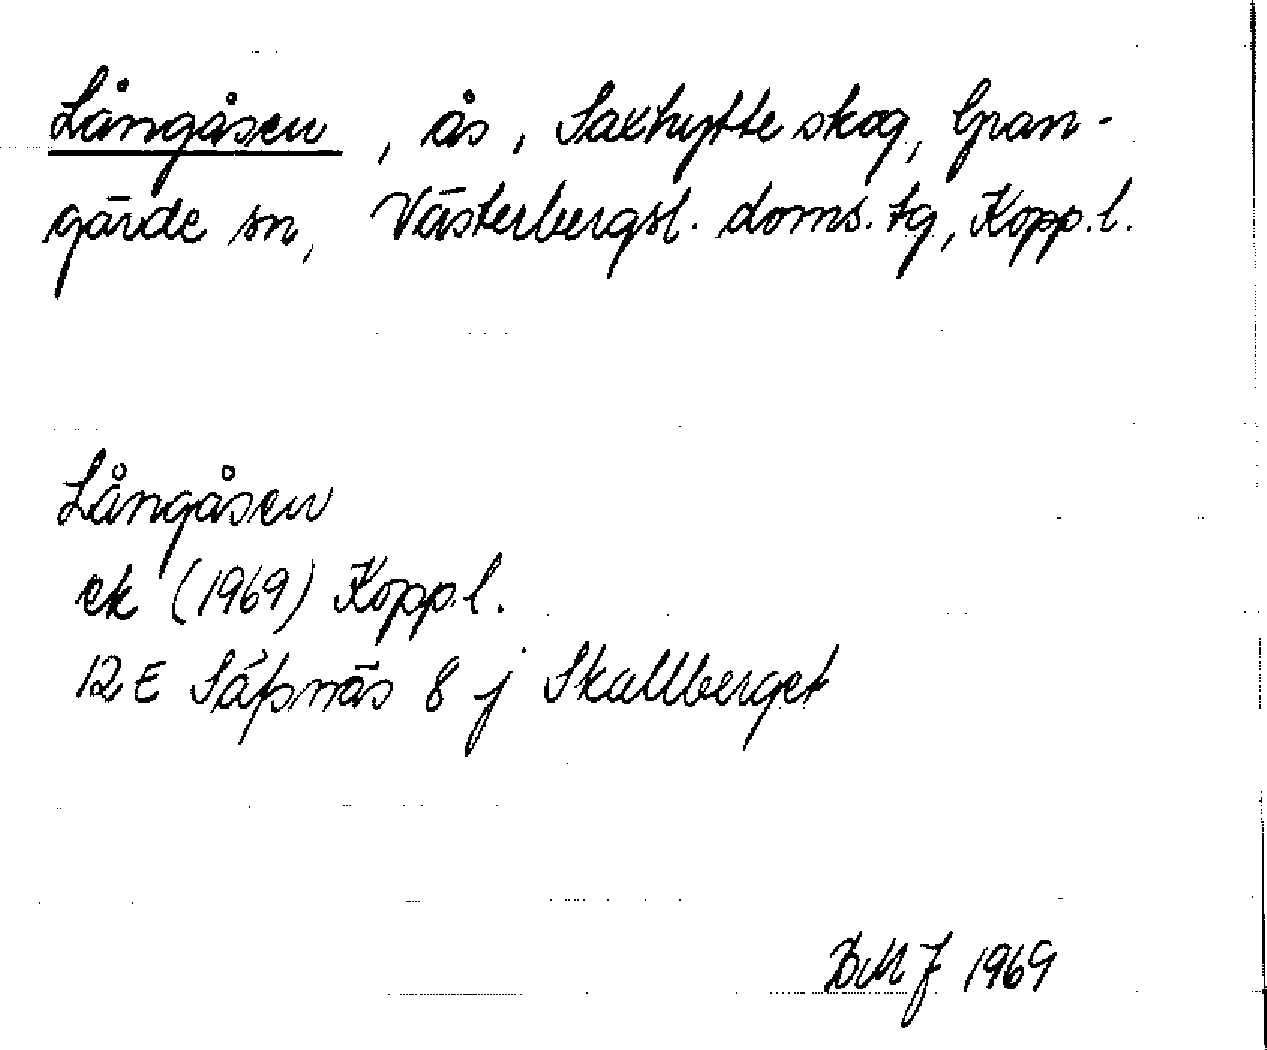 Långåsen, ås, Saxhytte skog, Gran-
gärde sn, Västerbergsl. doms. tg, Kopp.l.
Långåsen
ek (1969) Kopp.l.
12 E Säfsnäs 8 j Skallberget
BMJ 1969